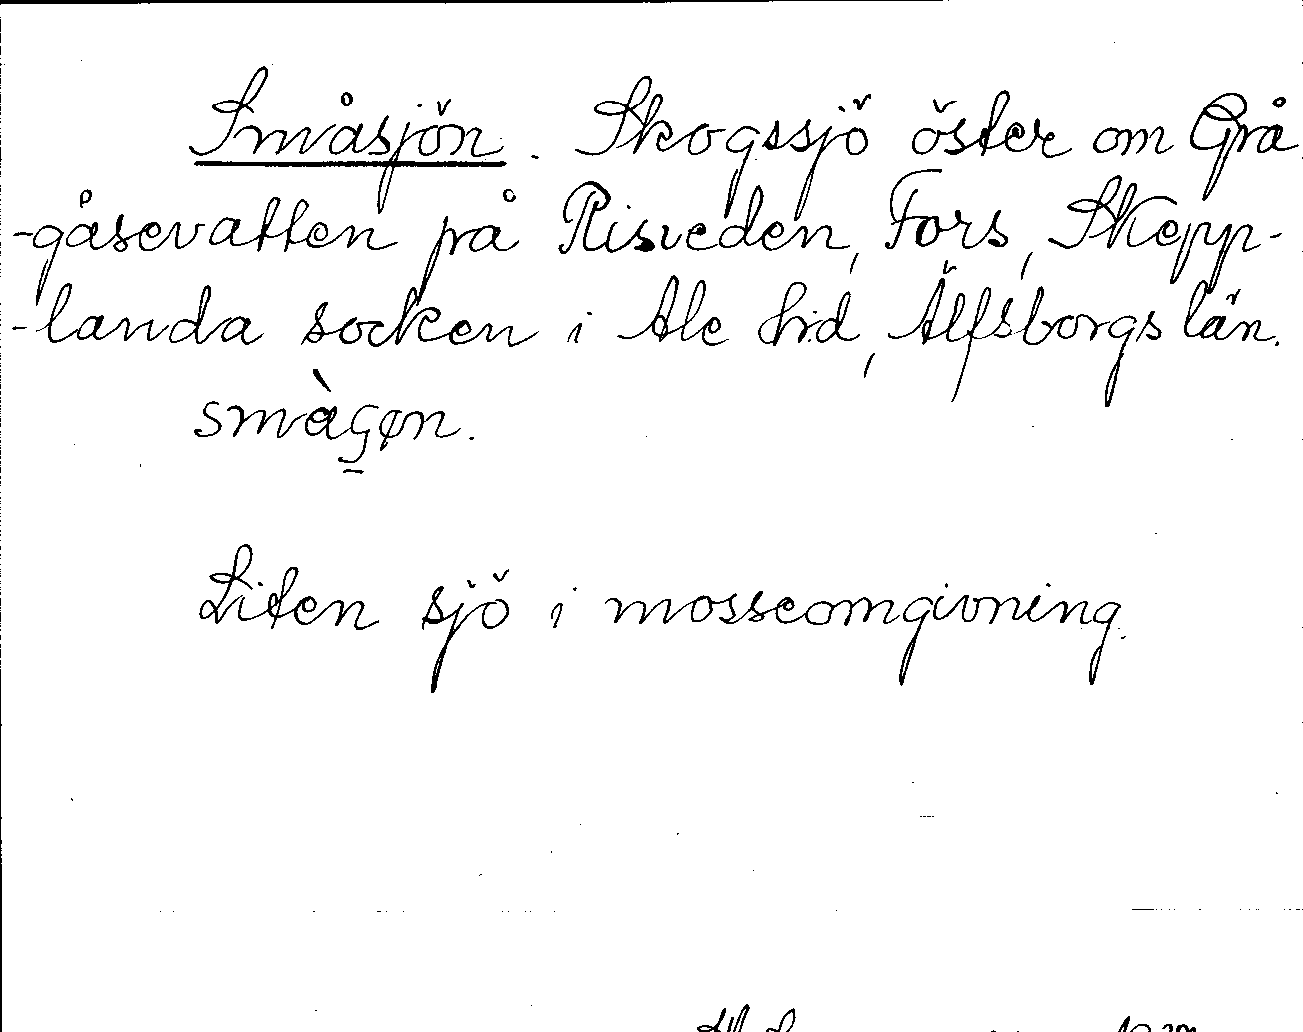 Småsjön. Skogssjö öster om Grå
-gåsevatten på Risveden, Fors, Skepp-
-landa socken i Ale hrd, Älfsborgs län.
smàʂøn.
Liten sjö i mosseomgivning.